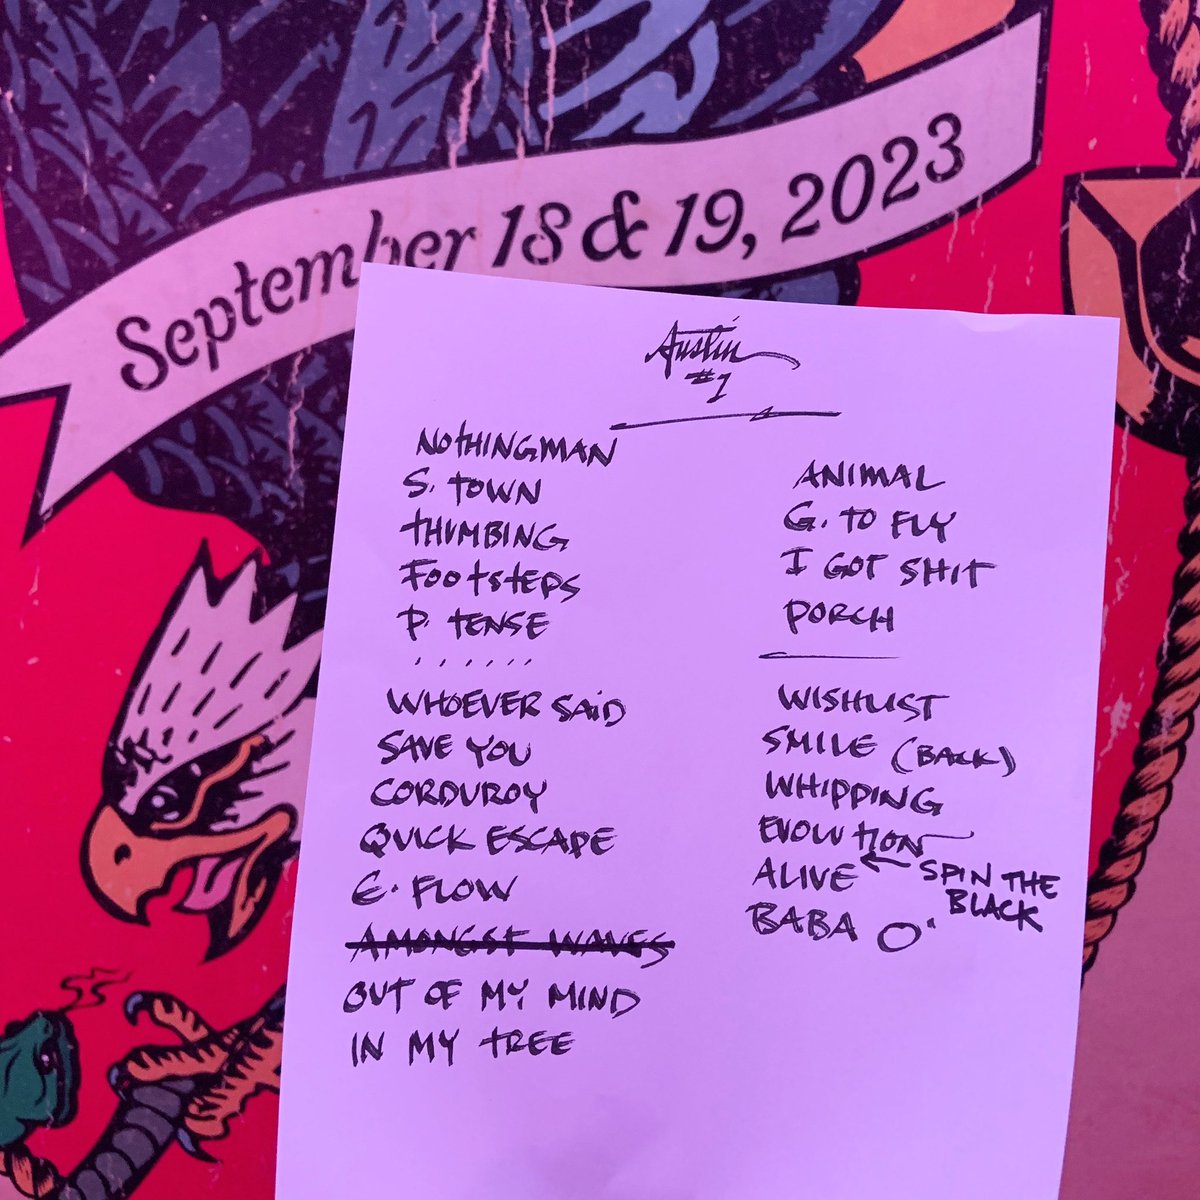 September 18 & 19, 2023
Austin
#1
NOTHINGMAN
S. TOWN
THUMBING
FOOTSTEPS
P. TENSE
WHOEVER SAID
SAVE YOU
CORDUROY
QUICK ESCAPE
E. FLOW
AMONGST WAVES
OUT OF MY MIND
IN MY TREE
ANIMAL
G. TO FLY
I GOT SHIT
PORCH
WISHLIST
SMILE (BACK)
WHIPPING
EVOLUTION
ALIVE ← SPIN THE
BLACK
BABA O'